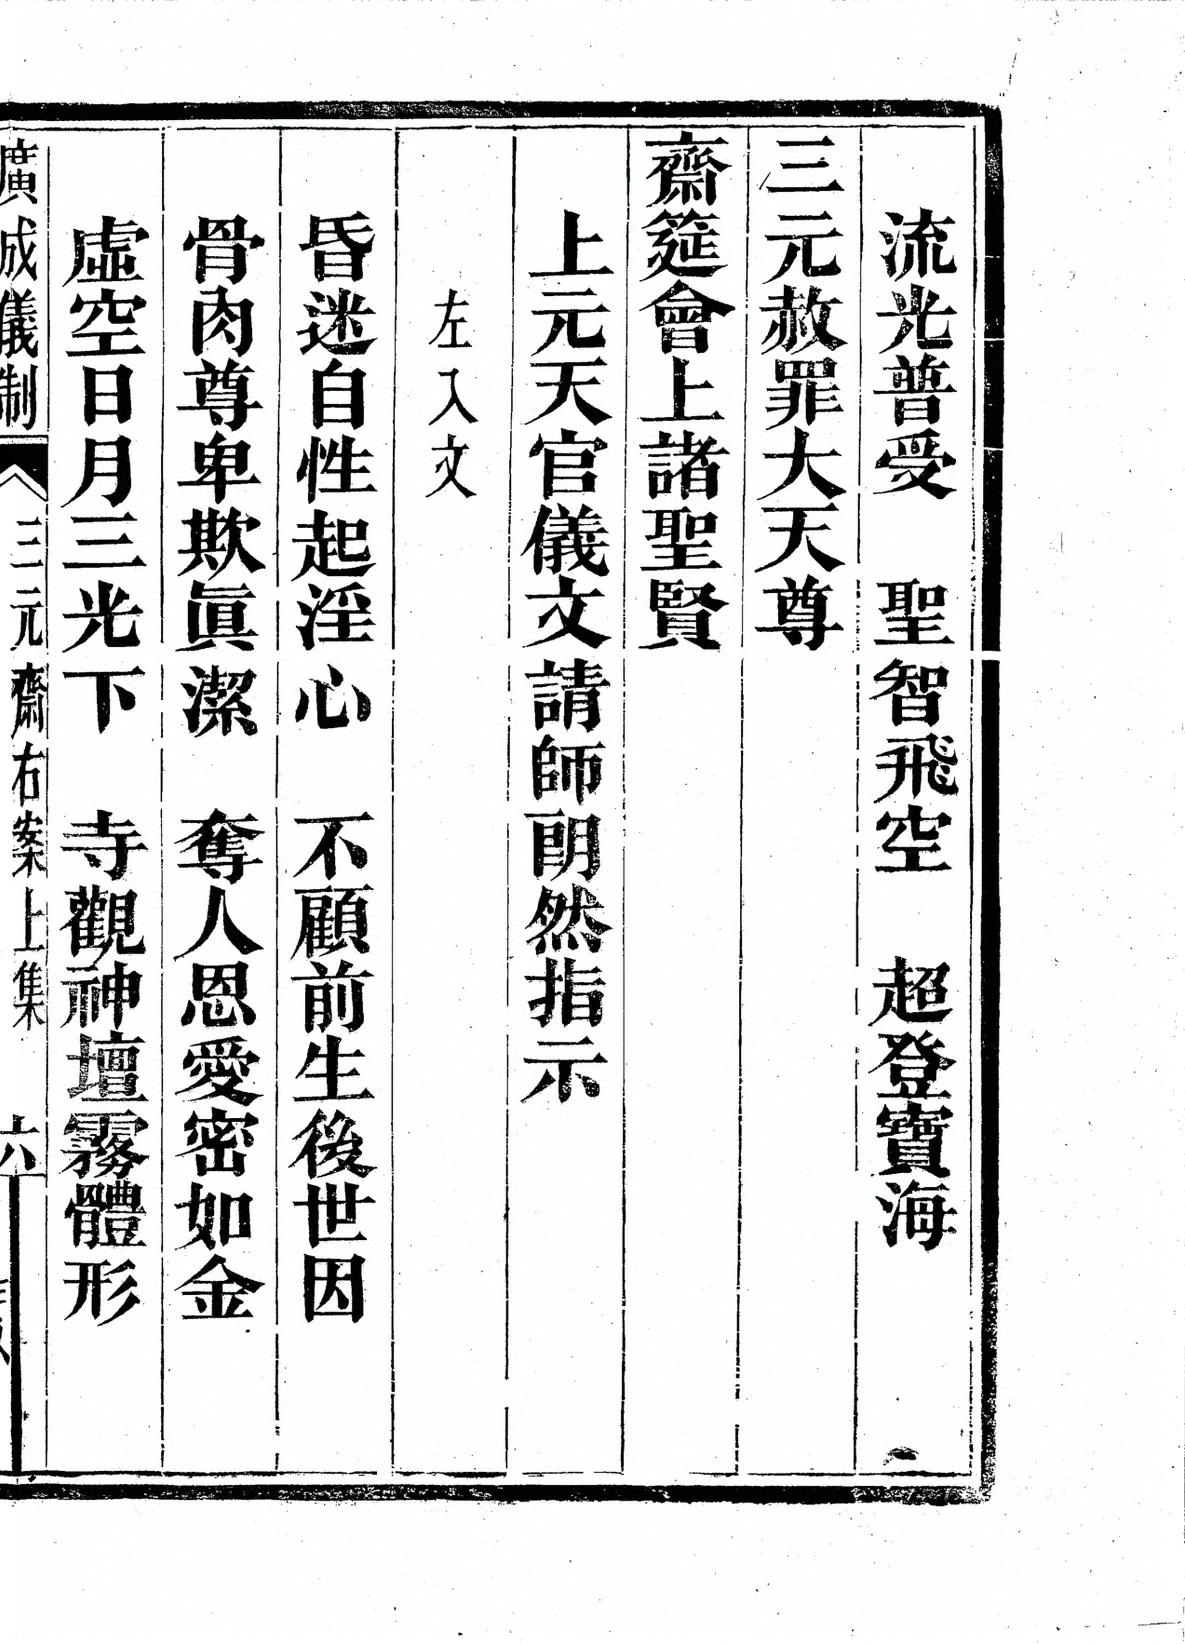 流光普受　聖智飛空　超登寶海
三元赦罪大天尊
齋筵會上諸聖賢
上元天官儀文請師朗然指示
左入文
昏迷自性起淫心　不顧前生後世因
骨肉尊卑欺眞潔　奪人恩愛密如金
虛空日月三光下　寺觀神壇霧體形
廣成儀制　三元齋右案上集　六